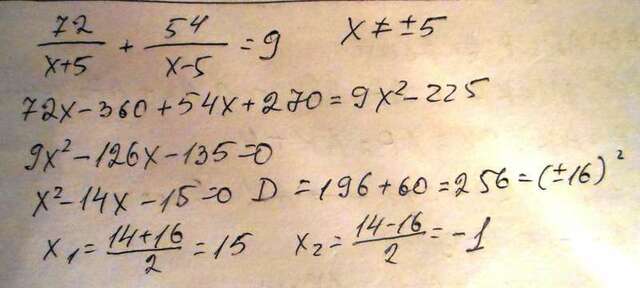 72/(x+5) + 54/(x-5) = 9 x ≠ ±5
72x - 360 + 54x + 270 = 9x² - 225
9x² - 126x - 135 = 0
x² - 14x - 15 = 0 D = 196 + 60 = 256 = (±16)²
x₁ = (14+16)/2 = 15 x₂ = (14-16)/2 = -1